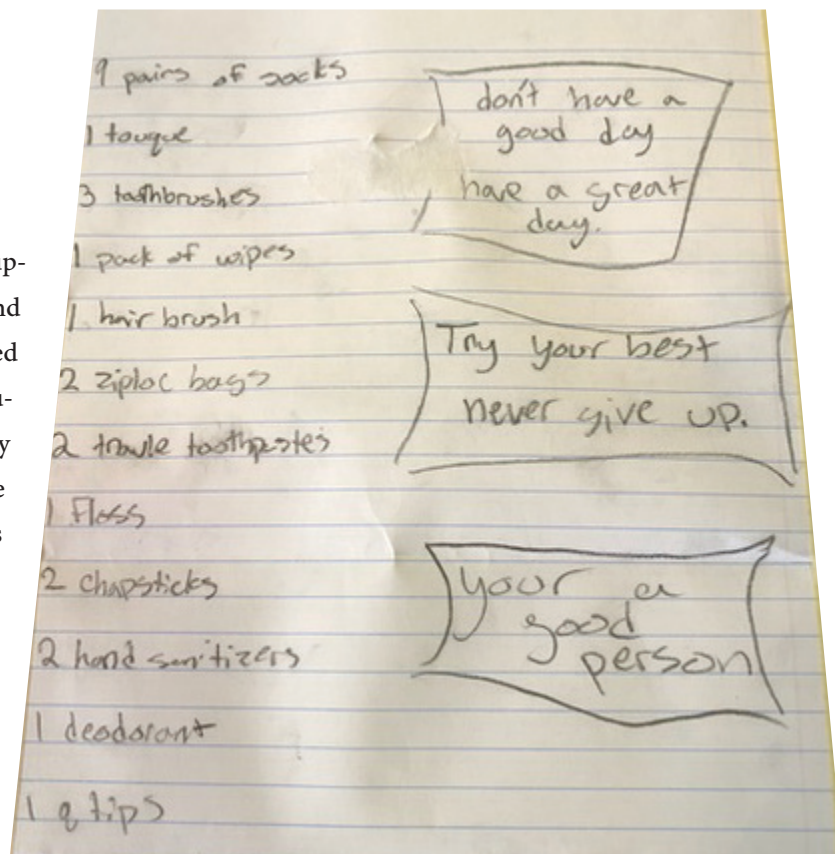 up-
nd
ed
u-
y
e
s
9 pairs of socks
1 touque
3 toothbrushes
1 pack of wipes
1 hair brush
2 ziploc bags
2 travle toothpastes
1 Floss
2 chapsticks
2 hand sanitizers
1 deodorant
1 q tips
don't have a
good day
have a great
day.
Try your best
never give up.
your a
good
person